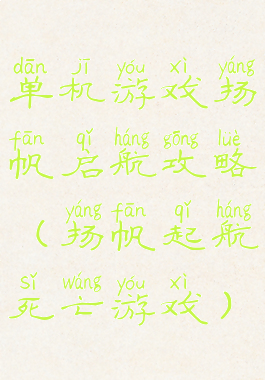 dān jī yóu xì yáng
单机游戏扬
fān qǐ háng gōng lüè
帆启航攻略
yáng fān qǐ háng
（扬帆起航
sǐ wáng yóu xì
死亡游戏）